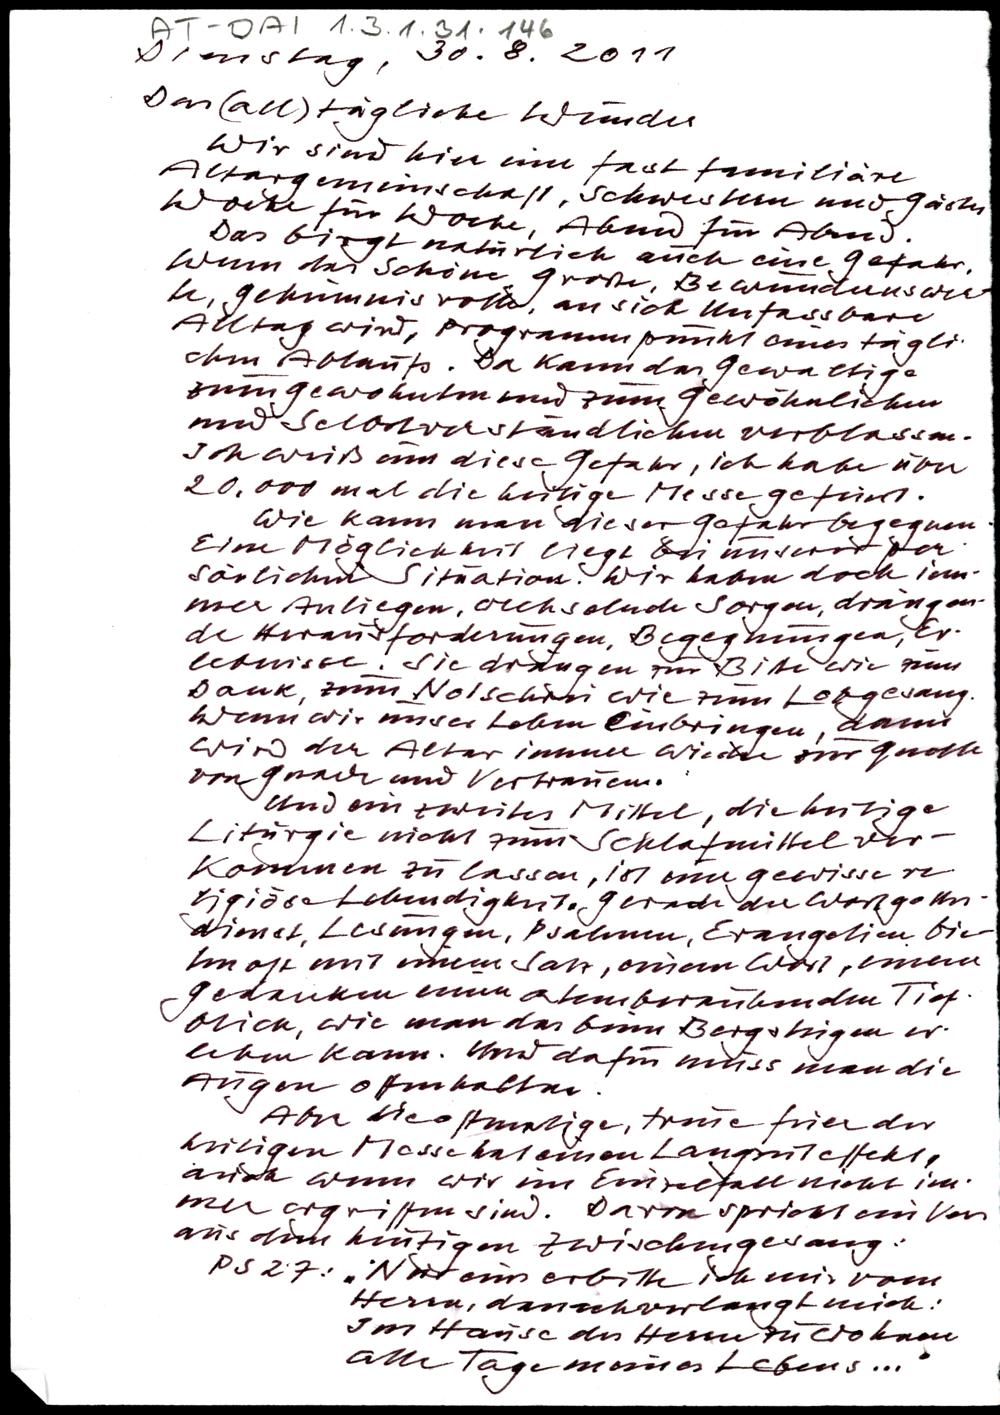 AT-DAI 1.3.1.31.146
Dienstag, 30. 8. 2011
Das (all)tägliche Wunder
Wir sind hier eine fast familiäre
Altargemeinschaft, Schwestern und Gäste,
Woche für Woche, Abend für Abend.
Das birgt natürlich auch eine Gefahr,
Wenn das Schöne, Große, Bewundernswer-
te, geheimnisvolle, an sich Unfassbare
Alltag wird, Programmpunkt eines tägli-
chen Ablaufs. Da kann das Gewaltige
zum Gewohnten und zum Gewöhnlichen
und Selbstverständlichen verblassen.
Ich weiß um diese Gefahr, ich habe über
20.000 mal die heilige Messe gefeiert.
Wie kann man dieser Gefahr begegnen.
Eine Möglichkeit liegt bei unserer per-
sönlichen Situation. Wir haben doch im-
mer Anliegen, wechselnde Sorgen, drängen-
de Herausforderungen, Begegnungen, Er-
lebnisse. Sie drängen zur Bitte wie zum
Dank, zum Notschrei wie zum Lobgesang.
Wenn wir unser Leben einbringen, dann
wird der Altar immer wieder zur Quelle
von Gnade und Vertrauen.
Und ein zweites Mittel, die heilige
Liturgie nicht zum Schlafmittel ver-
kommen zu lassen, ist eine gewisse re
ligiöse Lebendigkeit. Gerade der Wortgottes-
dienst, Lesungen, Psalmen, Evangelien bie-
ten oft mit einem Satz, einem Wort, einem
Gedanken einen atemberaubenden Tief-
blick, wie man das beim Bergsteigen er-
leben kann. Und dafür muss man die
Augen offenhalten.
Aber die oftmalige, treue Feier der
heiligen Messe hat einen Langzeiteffekt,
auch wenn wir im Einzelfall nicht im-
mer ergriffen sind. Davon spricht ein Vers
aus dem heutigen Zwischengesang:
PS 27: „Nur eins erbitte ich mir vom
Herrn, danach verlangt mich:
Im Hause des Herrn zu wohnen
alle Tage meines Lebens..."